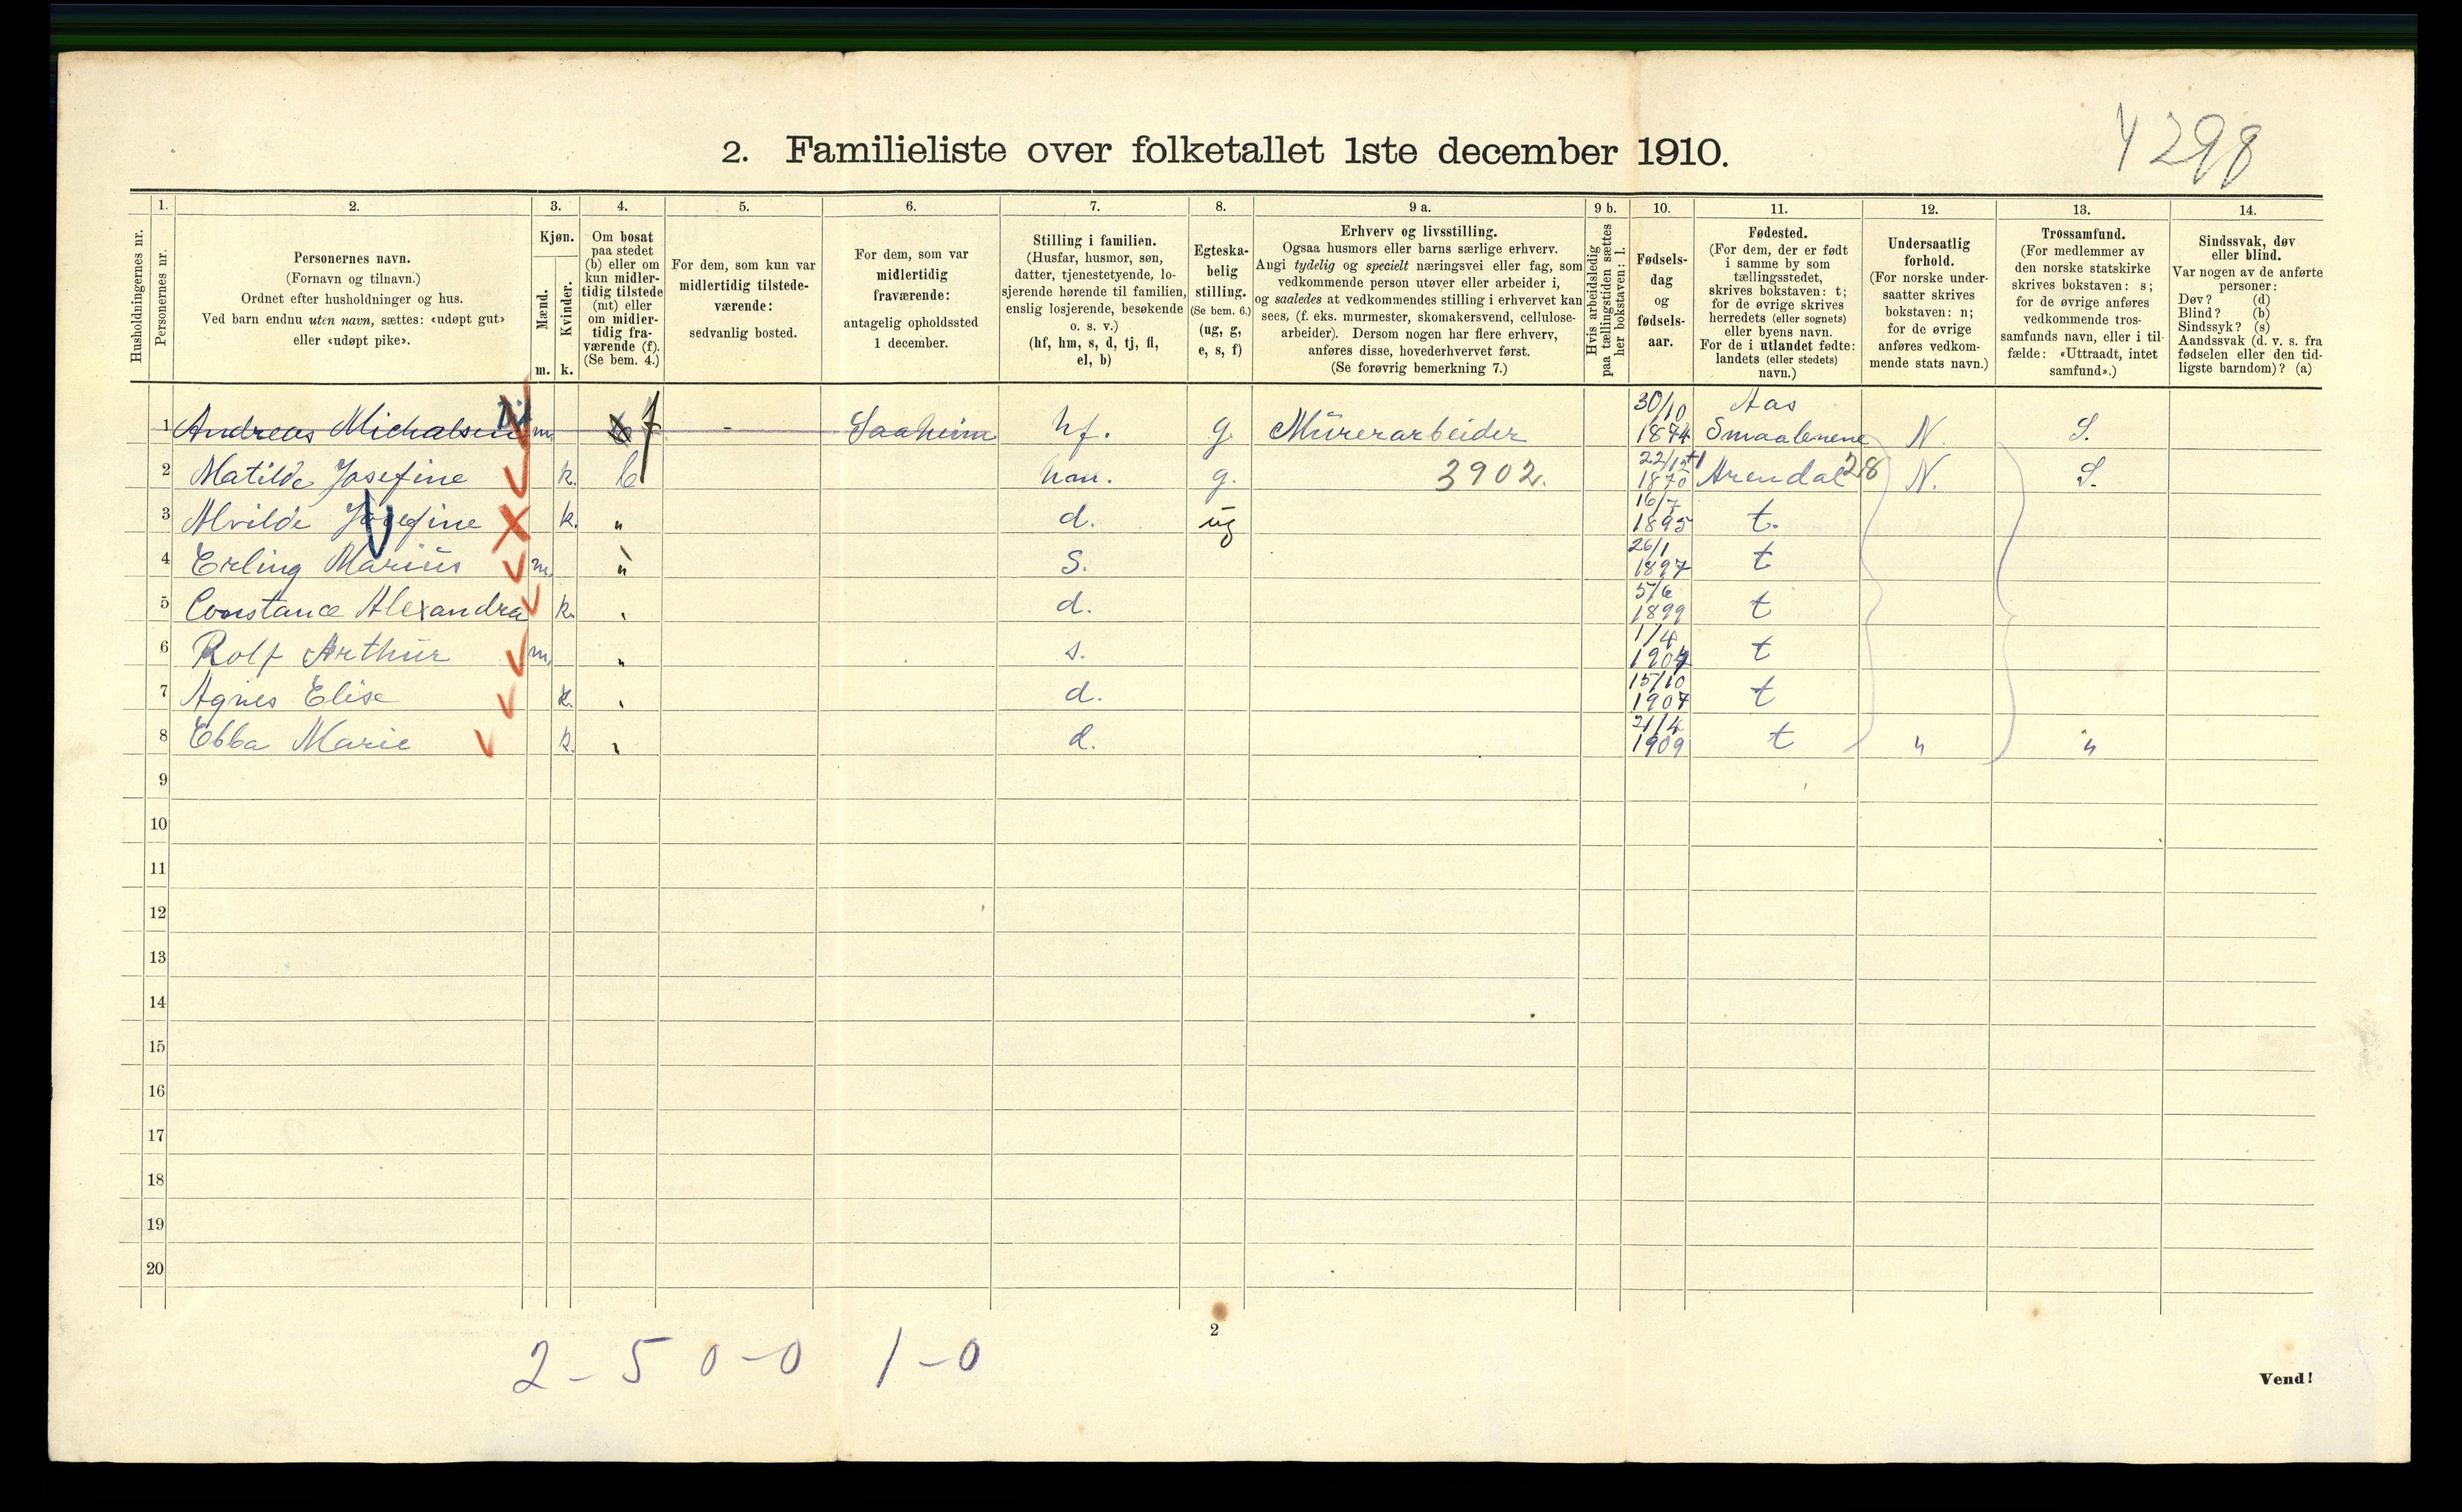 4298
2. Familieliste over folketallet 1ste december 1910.
Husholdningernes nr.
1.
Personernes nr.
2.
Personernes navn.
(Fornavn og tilnavn.)
Ordnet efter husholdninger og hus.
Ved barn endnu uten navn, sættes: «udøpt gut»
eller «udøpt pike».
3.
Kjøn.
Mænd.
Kvinder.
m. k.
4.
Om bosat
paa stedet
(b) eller om
kun midler-
tidig tilstede
(mt) eller
om midler-
tidig fra-
værende (f).
(Se bem. 4.)
5.
For dem, som kun var
midlertidig tilstede-
værende:
sedvanlig bosted.
6.
For dem, som var
midlertidig
fraværende:
antagelig opholdssted
1 december.
7.
Stilling i familien.
(Husfar, husmor, søn,
datter, tjenestetyende, lo-
sjerende hørende til familien,
enslig losjerende, besøkende
o. s. v.)
(hf, hm, s, d, tj, fl,
el, b)
8.
Egteska-
belig
stilling.
(Se bem. 6.)
(ug, g,
e, s, f)
9 a.
Erhverv og livsstilling.
Ogsaa husmors eller barns særlige erhverv.
Angi tydelig og specielt næringsvei eller fag, som
vedkommende person utøver eller arbeider i,
og saaledes at vedkommendes stilling i erhvervet kan
sees, (f. eks. murmester, skomakersvend, cellulose-
arbeider). Dersom nogen har flere erhverv,
anføres disse, hovederhvervet først.
(Se forøvrig bemerkning 7.)
9 b.
Hvis arbeidsledig
paa tællingstiden sættes
her bokstaven: l.
10.
Fødsels-
dag
og
fødsels-
aar.
11.
Fødested.
(For dem, der er født
i samme by som
tællingsstedet,
skrives bokstaven: t;
for de øvrige skrives
herredets (eller sognets)
eller byens navn.
For de i utlandet fødte:
landets (eller stedets)
navn.)
12.
Undersaatlig
forhold.
(For norske under-
saatter skrives
bokstaven: n;
for de øvrige
anføres vedkom-
mende stats navn.)
13.
Trossamfund.
(For medlemmer av
den norske statskirke
skrives bokstaven: s;
for de øvrige anføres
vedkommende tros-
samfunds navn, eller i til-
fælde: «Uttraadt, intet
samfund».)
14.
Sindssvak, døv
eller blind.
Var nogen av de anførte
personer:
Døv? (d)
Blind? (b)
Sindssyk? (s)
Aandssvak (d. v. s. fra
fødselen eller den tid-
ligste barndom)? (a)
1 Andreas Michalsen m. b f - Saaheim hf. g. Murerarbeider 30/10 1874 Aas Smaalenene N. S.
2 Matilde Josefine k. b hm. g. 3902. 22/12 1870 Arendal 28 N. S.
3 Alvilde Josefine k. " d. ug 16/7 1895 t.
4 Erling Marius m. " s. 26/1 1897 t
5 Constance Alexandra k. " d. 5/6 1899 t
6 Rolf Arthur m. " s. 1/4 1904 t
7 Agnes Elise k. " d. 15/10 1907 t
8 Ebba Marie k. " d. 21/4 1909 t " "
9
10
11
12
13
14
15
16
17
18
19
20
2
2 - 5 0 - 0 1 - 0
Vend!